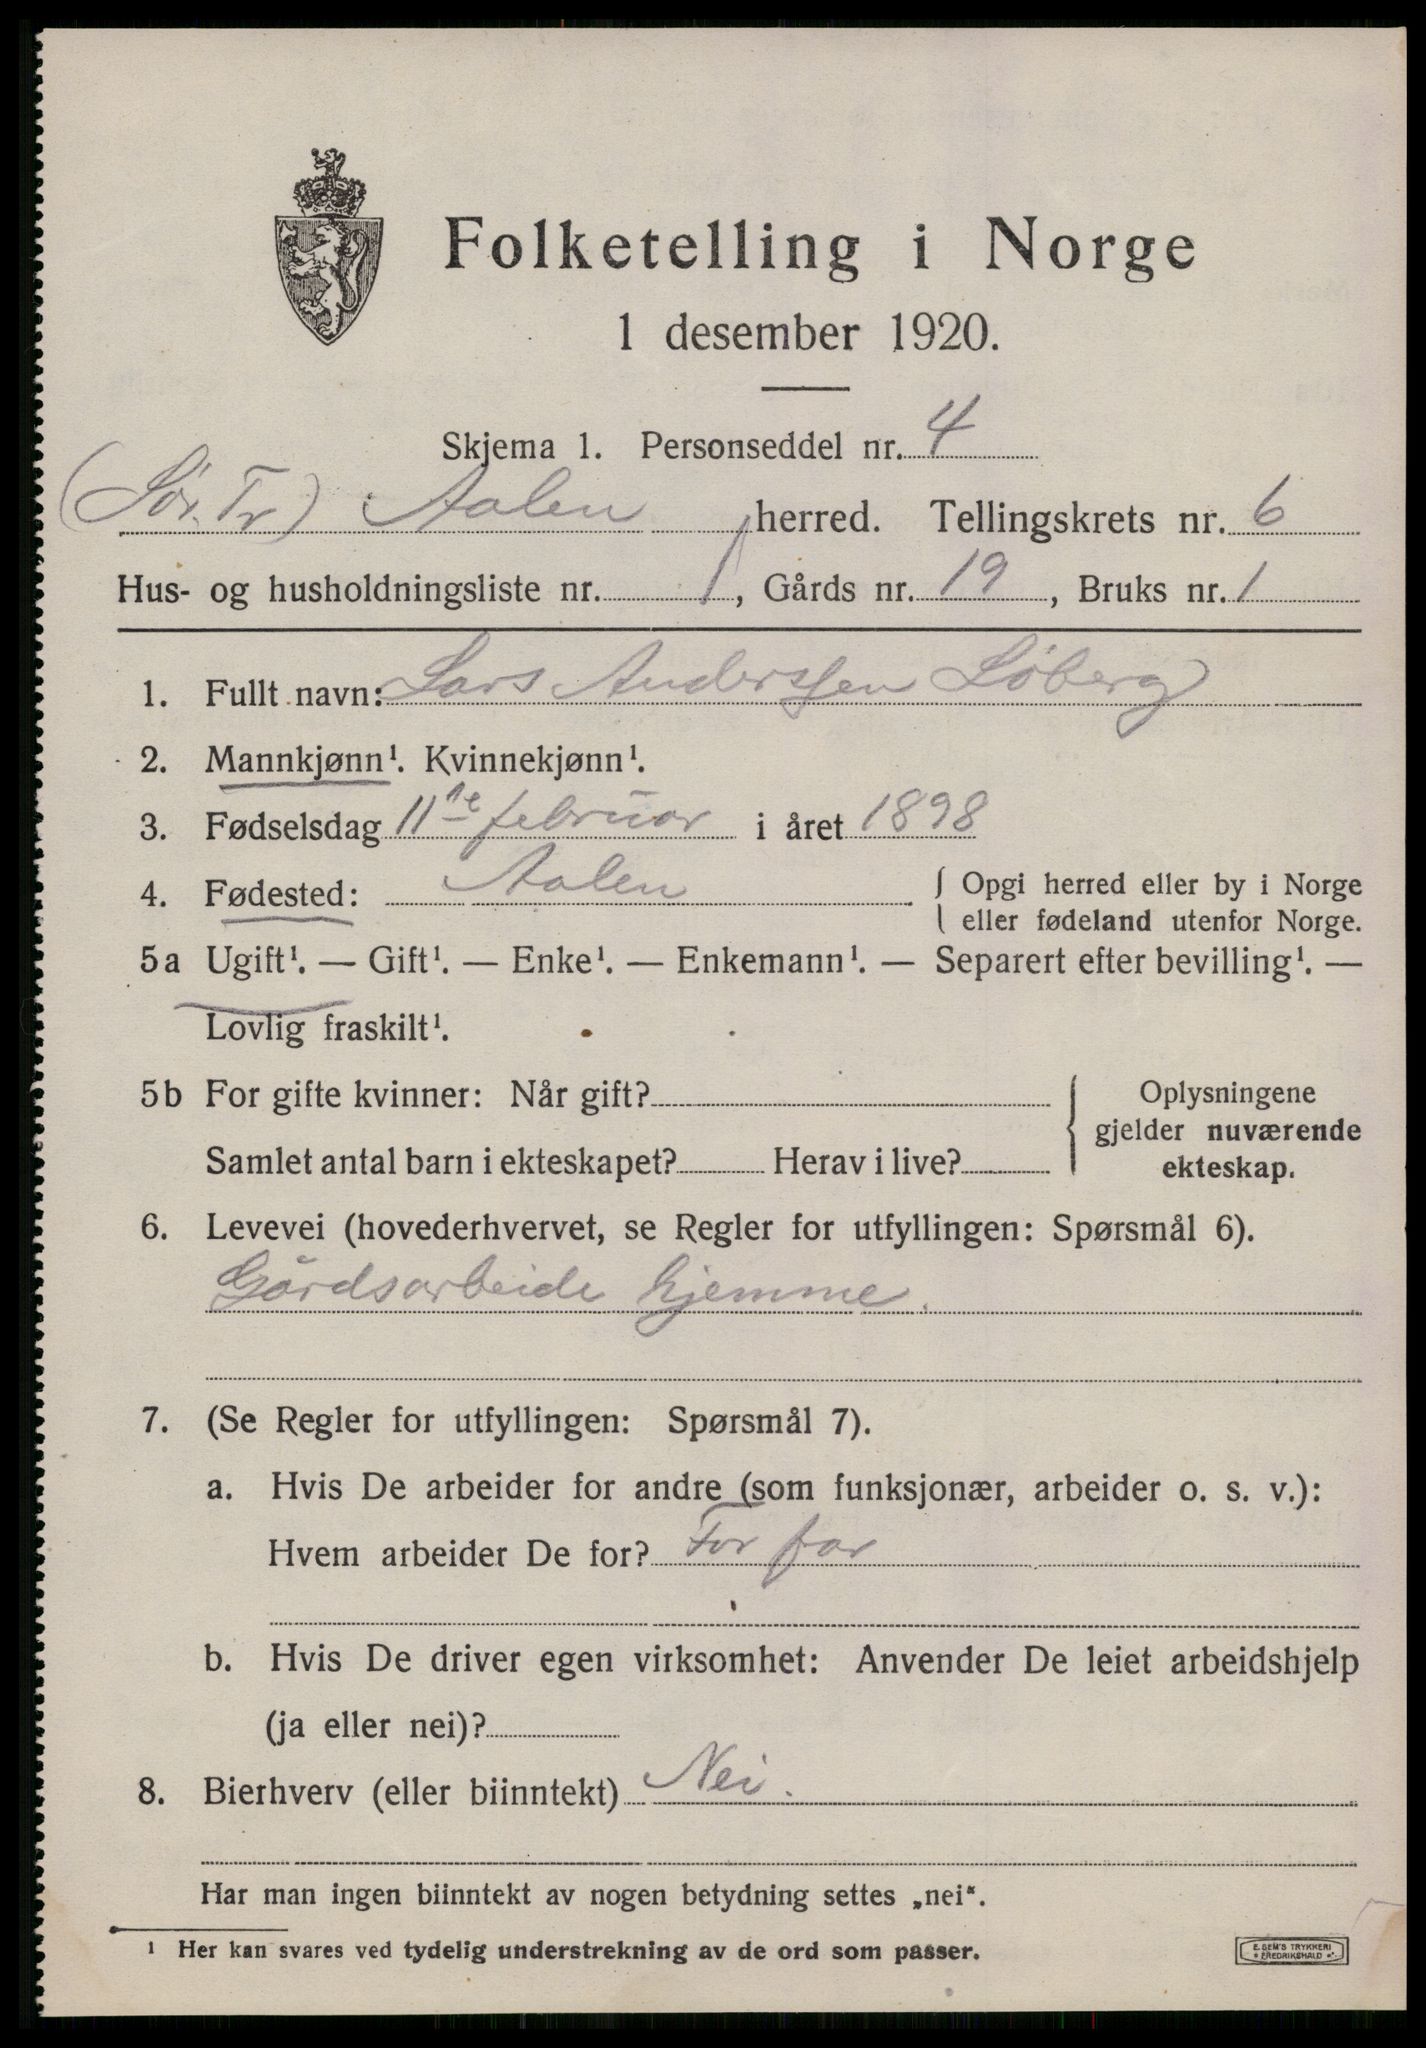 Folketelling i Norge
1 desember 1920.
Skjema 1. Personseddel nr. 4
(Sør. Tr) Aalen herred. Tellingskrets nr. 6
Hus- og husholdningsliste nr. 1, Gårds nr. 19, Bruks nr. 1
1. Fullt navn: Lars Anderssen Løberg
2. Mannkjønn¹. Kvinnekjønn¹.
3. Fødselsdag 11te februar i året 1898
4. Fødested: Aalen { Opgi herred eller by i Norge
eller fødeland utenfor Norge.
5a Ugift¹. — Gift¹. — Enke¹. — Enkemann¹. — Separert efter bevilling¹. —
Lovlig fraskilt¹.
5b For gifte kvinner: Når gift? { Oplysningene
gjelder nuværende
Samlet antal barn i ekteskapet? Herav i live? ekteskap.
6. Levevei (hovederhvervet, se Regler for utfyllingen: Spørsmål 6).
Gårdsarbeide hjemme.
7. (Se Regler for utfyllingen: Spørsmål 7).
a. Hvis De arbeider for andre (som funksjonær, arbeider o. s. v.):
Hvem arbeider De for? For far
b. Hvis De driver egen virksomhet: Anvender De leiet arbeidshjelp
(ja eller nei)?
8. Bierhverv (eller biinntekt) Nei.
Har man ingen biinntekt av nogen betydning settes „nei".
¹ Her kan svares ved tydelig understrekning av de ord som passer.
E. SEM'S TRYKKERI
FREDRIKSHALD